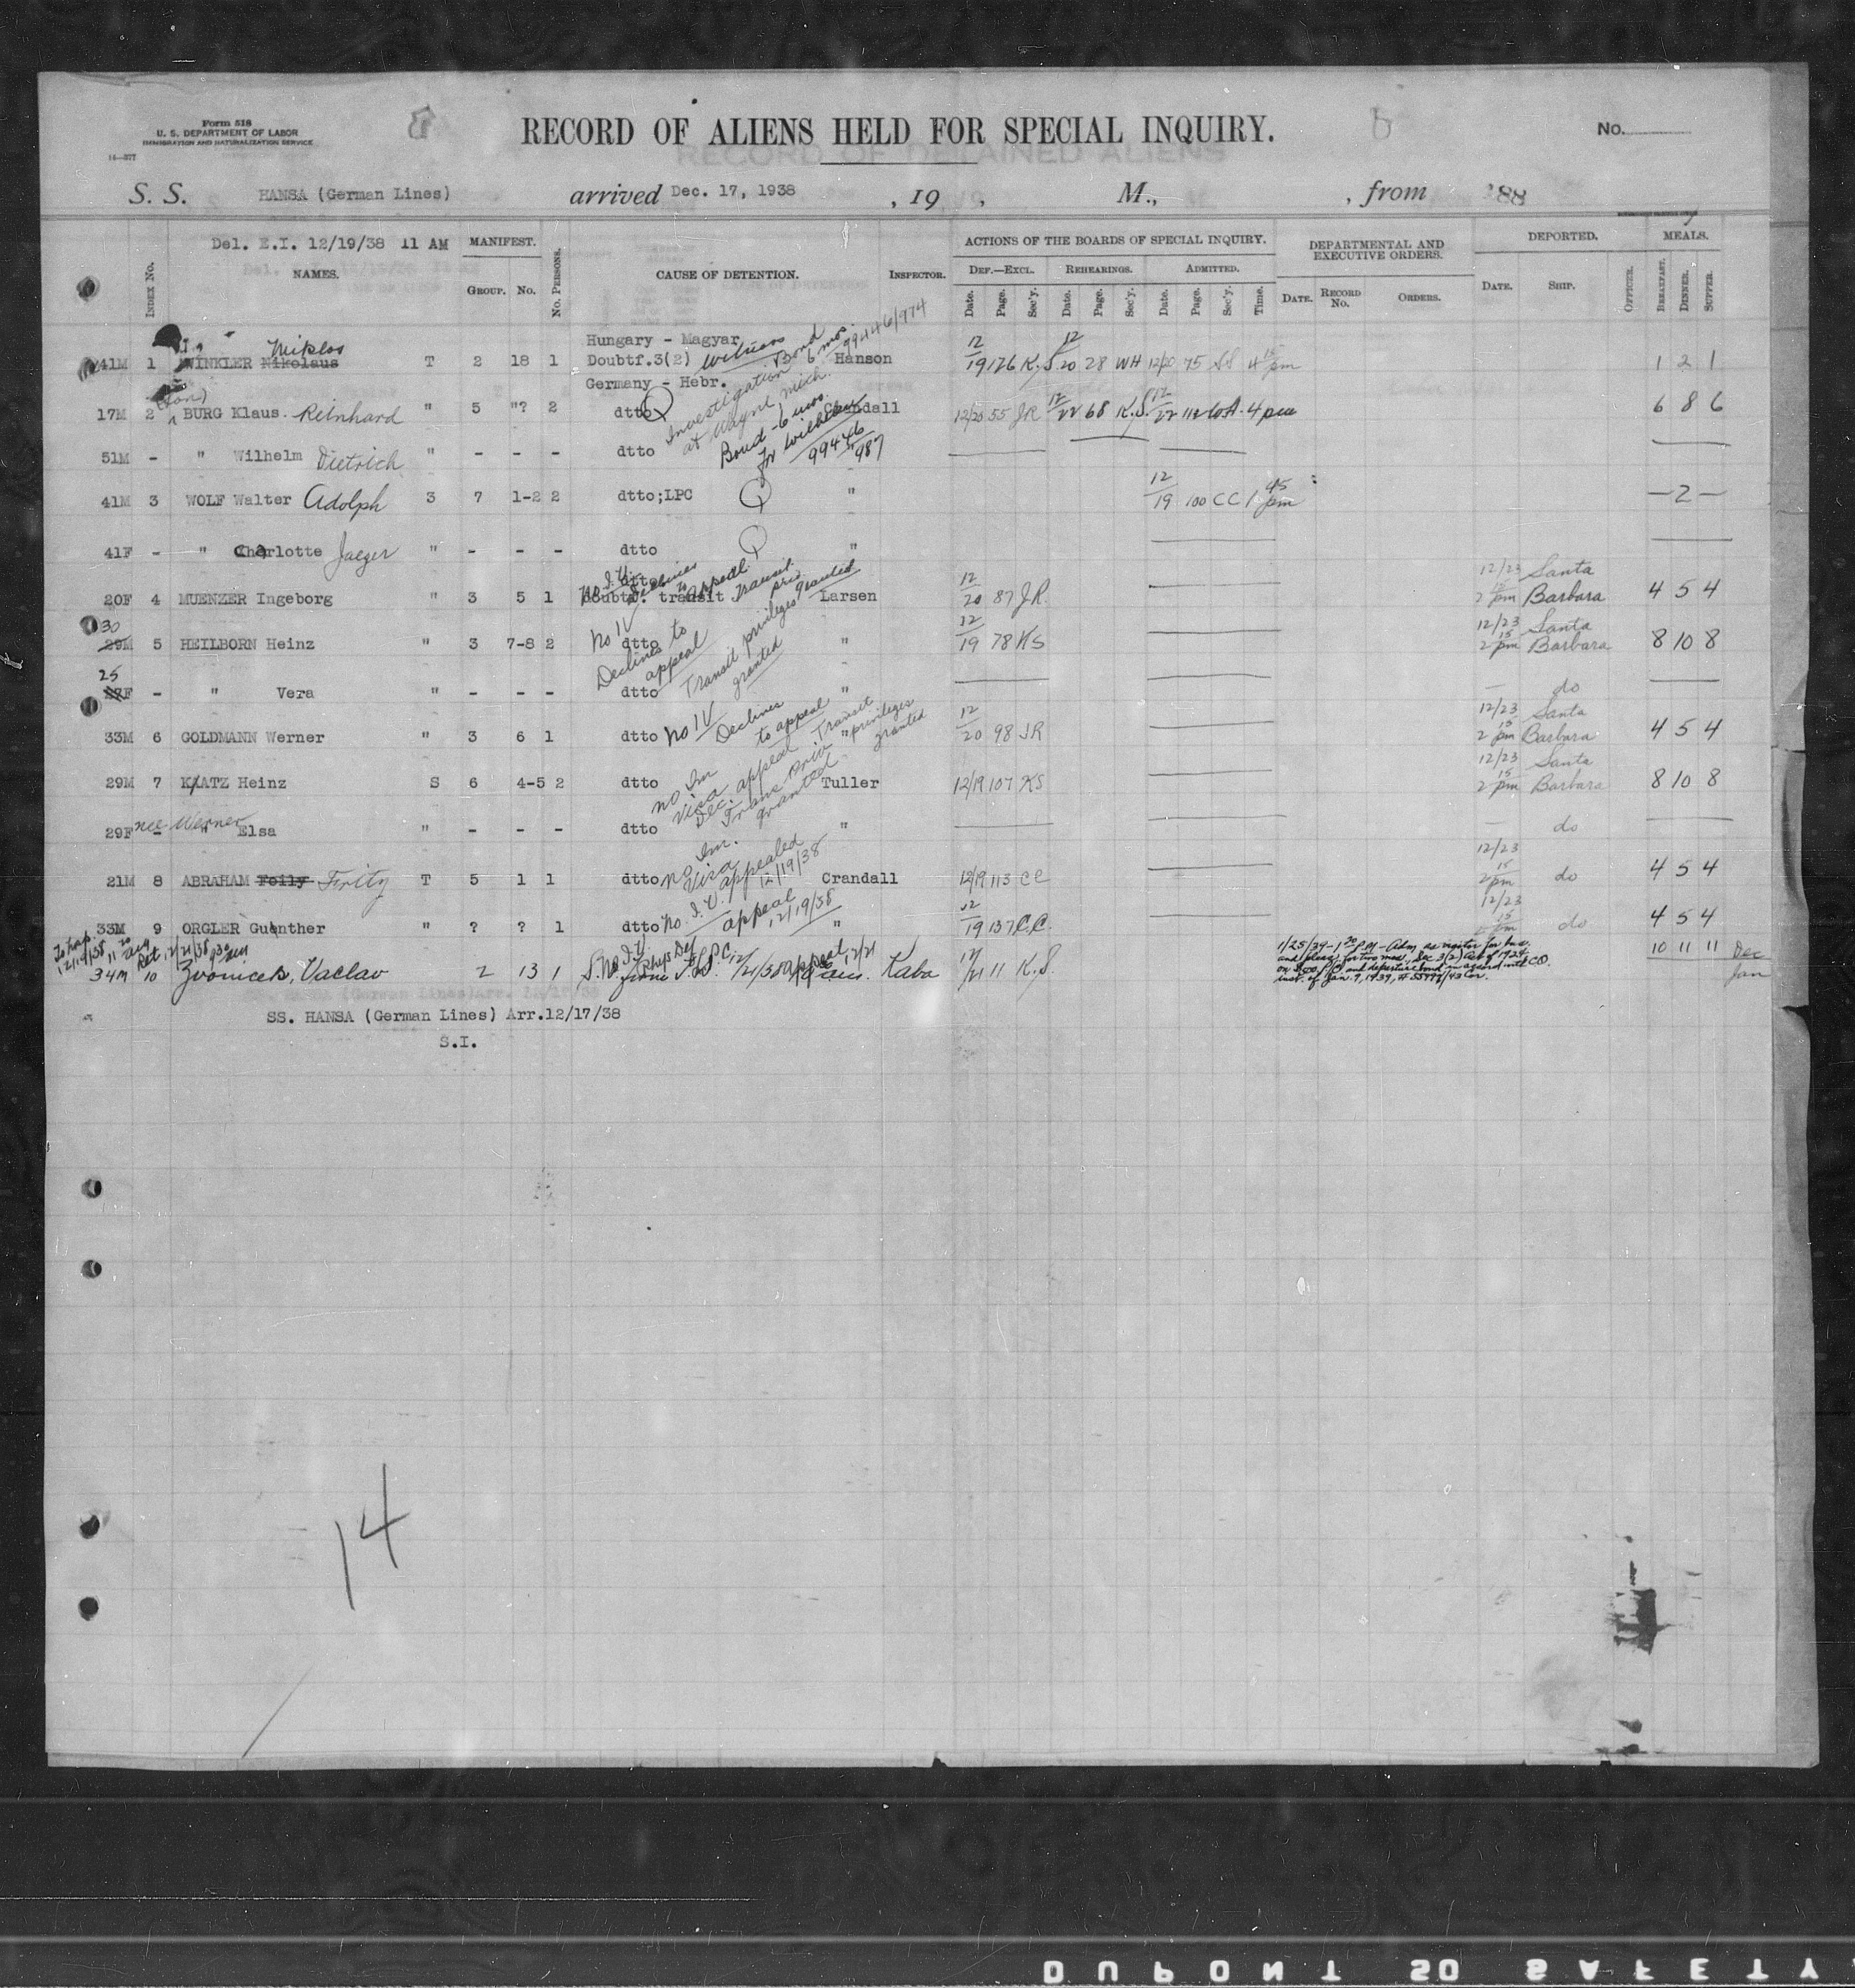 Form 518
U. S. DEPARTMENT OF LABOR
IMMIGRATION AND NATURALIZATION SERVICE
RECORD OF ALIENS HELD FOR SPECIAL INQUIRY.
No.
S. S. HANSA (German Lines) arrived Dec. 17, 1938 , 19 , M., , from 88
Del. E.I. 12/19/38 11 AM MANIFEST. ACTIONS OF THE BOARDS OF SPECIAL INQUIRY. DEPARTMENTAL AND EXECUTIVE ORDERS. DEPORTED. MEALS.
INDEX No. NAMES. GROUP. No. No. PERSONS. CAUSE OF DETENTION. INSPECTOR. DEF.—EXCL. REHEARINGS. ADMITTED.
Date. Page. Sec'y. Date. Page. Sec'y. Date. Page. Sec'y. Time. DATE. RECORD No. ORDERS. DATE. SHIP. OFFICER. BREAKFAST. DINNER. SUPPER.
Hungary - Magyar 99446/974
41M 1 WINKLER Nikolaus Miklos T 2 18 1 Doubtf.3(2) Witness Bond 6 mos. Hanson 12/19 126 K.S. 12/20 28 WH 12/20 75 4 15 pm 1 2 1
Germany - Hebr.
17M 2 (Son) BURG Klaus Reinhard " 5 "? 2 dtto Investigation at Wayne, Mich. Crandall 12/20 55 JR 12/22 68 K.S. 12/22 112 4 pm 6 8 6
51M - " Wilhelm Dietrich " - - - dtto Bond - 6 mos. for Wilhelm 99446/987
41M 3 WOLF Walter Adolph 3 7 1-2 2 dtto;LPC " 12/19 100 CC 1 45 pm - 2 -
41F - " Charlotte Jaeger " - - - dtto "
dtto
20F 4 MUENZER Ingeborg " 3 5 1 Doubtf. transit No I.V. Declines to appeal. Transit privileges granted Larsen 12/20 87 J.R. 12/23 2 15 pm Santa Barbara 4 5 4
30
29M 5 HEILBORN Heinz " 3 7-8 2 dtto No IV Declines to appeal Transit privileges granted " 12/19 78 KS 12/23 2 15 pm Santa Barbara 8 10 8
25
27F - " Vera " - - - dtto " - do
33M 6 GOLDMANN Werner " 3 6 1 dtto No IV Declines to appeal Transit privileges granted " 12/20 98 JR 12/23 2 15 pm Santa Barbara 4 5 4
29M 7 KATZ Heinz S 6 4-5 2 dtto No Im Visa Dec. appeal Trans priv granted Tuller 12/19 107 KS 12/23 2 15 pm Santa Barbara 8 10 8
29F - nee Werner " Elsa " - - - dtto " - do
21M 8 ABRAHAM T 5 1 1 dtto No Im. Visa appealed 12/19/38 Crandall 12/19 113 CC 12/23 2 15 pm do 4 5 4
33M 9 ORGLER Guenther " ? ? 1 dtto No I.V. appeal 12/19/38 " 12/19 137 C.C. 12/23 15 pm do 4 5 4
To hosp 12/19/38 Ret. 12/21/38
34M 10 Zvonicek, Vaclav 2 13 1 No I.V. Phys Def LPC 12/21/38 appeal 12/21 Kaba 12/21 11 K.S. 1/25/39 - 1 30 P.M - Adm as visitor for bus. and pleas. for two mos, Sec 3(2) Act of 1924 on $500 and departure bond in accord with CO. inst. of Jan. 9, 1939, 10 11 11 Dec
Jan
SS. HANSA (German Lines) Arr.12/17/38
S.I.
14
DUPONT SO SAFETY